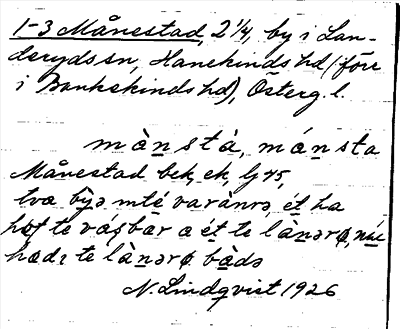 1-3 Månestad, 2 1/4, by i Lan-
deryds sn, Hanekinds hd (före
i Bankekinds hd), Österg. l.
mà̱nstà, má̱nsta
Månestad bek, ek, Gj 45,
två by̱ə mté varànrə, ét ha
te vásbär a ét te lànərø,
hædɩ te lànərø bàdə
N. Lindqvist 1926